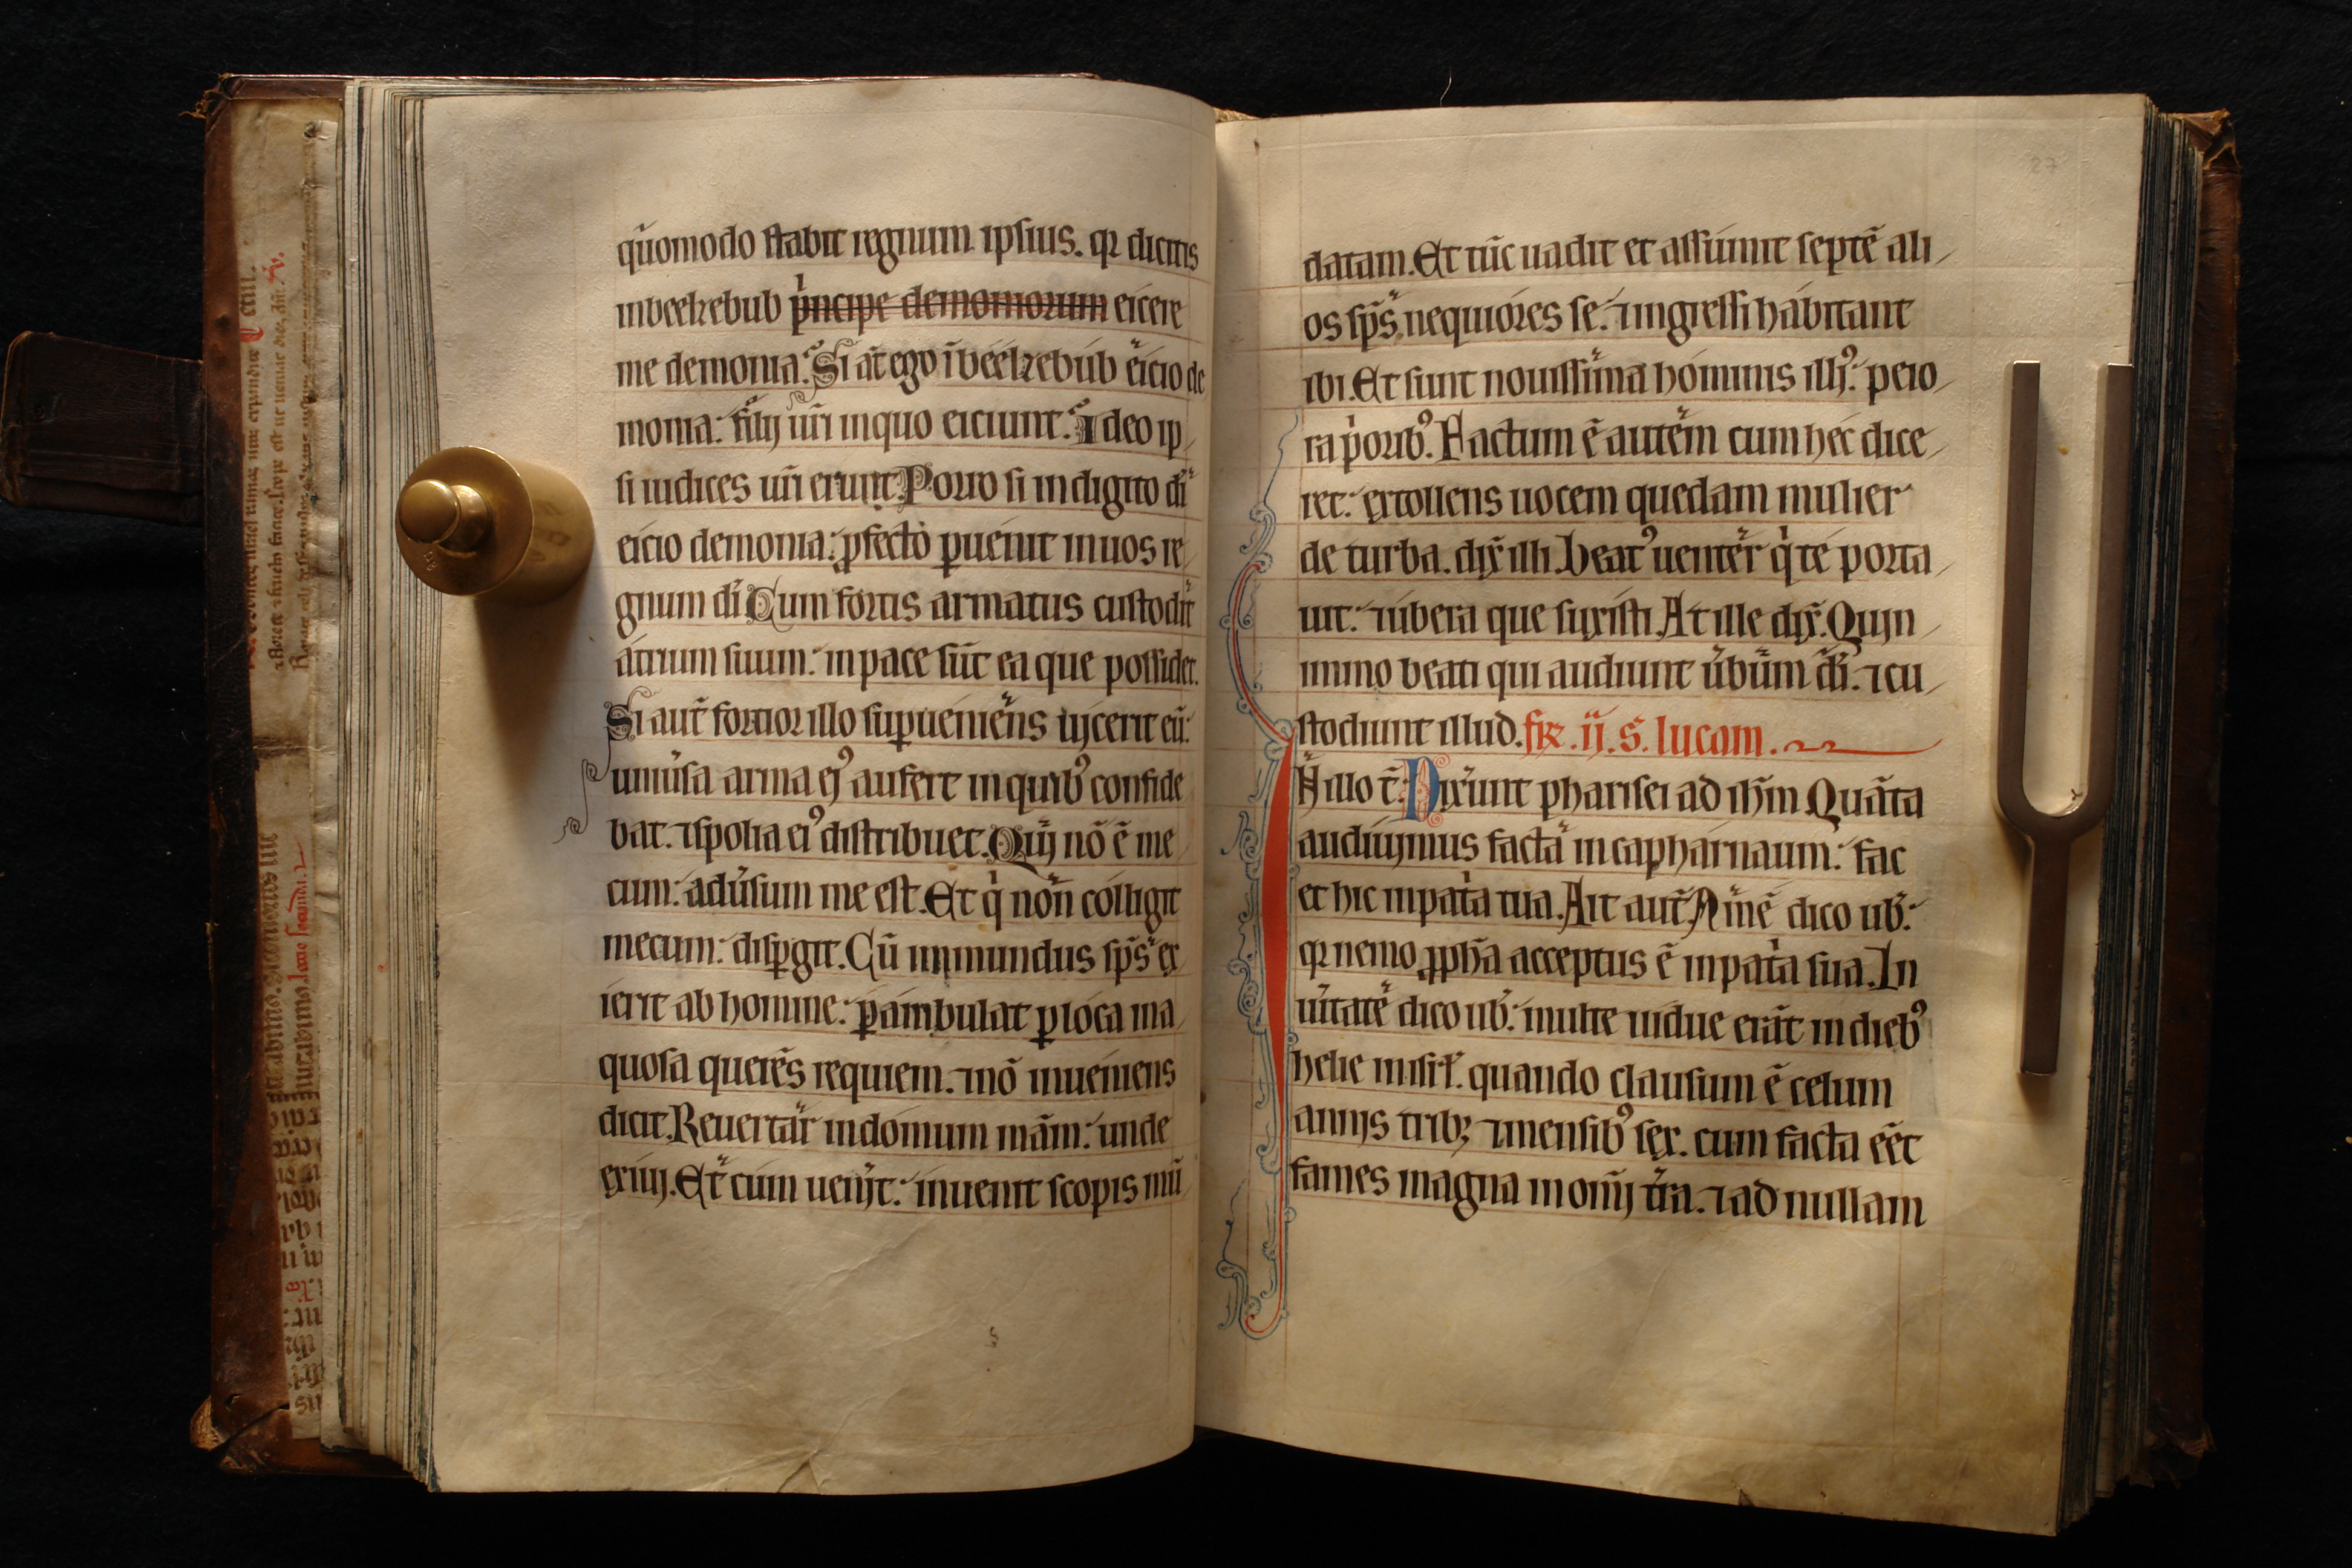 quomodo stabit regnum ipsius. qr dicitis
inbeelzebub p̍ncipe demoniorum eicere
me demonia. Si at̄ ego ī beelzebub eicio de
monia: filij ur̄i inquo eiciunt. Ideo ip
si iudices ur̄i erunt. Porro si in digito di̅
eicio demonia: ꝓfecto ꝑuenit in uos re
gnum di̅. Cum fortis armatus custodit
atrium suum: in pace sūt ea que possidet.
Si aut̄ fortior illo suꝑueniēns uicerit eū:
uniūsa arma ejꝰ aufert in quibꝰ confide
bat. ⁊ spolia eiꝰ distribuet. Qui nō ē me
cum: adūsum me est. Et q̍ non colligit
mecum: disꝑgit. Cū inmundus sp̄s ex
ierit ab homine: ꝑambulat ꝑ loca ina
quosa querēs requiem. ⁊ nō inueniens
dicit. Reuertar in domum mām: unde
exiui. Et cum uenīt: inuenit scopis mū
27
datam. Et tūc uadit et assumit septē ali
os sp̄s nequiores se. ⁊ ingressi habitant
ibi. Et sunt nouissima hominis illiꝰ: peio
ra p̍oribꝰ. Factum ē autēm cum hec dice
ret: extollens uocem quedam mulier
de turba. dix̄ illi. Beatꝰ uenter q̍ te porta
uit: ⁊ ubera que suxisti. At ille dix̄. Quin
immo beati qui audiunt ūbūm di̅. ⁊ cu
stodiunt illud. fr̄. ij. S. lucam.
In illo t̄. Dixerunt pharisei ad ih̄m Quāta
audiuimus facta in capharnaum: fac
et hic in pat̍a tua. Ait aut̄. Amē dico ub̄:
qr nemo ꝓph̄a acceptus ē in pat̍a sua. In
ūitatē dico ub̄: multe uidue erāt in diebꝰ
helie in isr̄l. quando clausum ē celum
annis tribꝫ ⁊ mensibꝰ sex. cum facta eēt
fames magna in om̄i t̄ra. ⁊ ad nullam